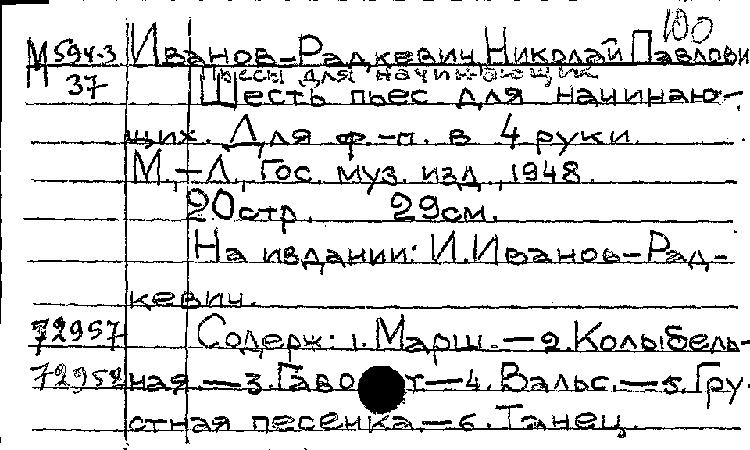 100
М594-3 Иванов-Радкевич Николай Павлови
37 Пьесы для начинающих
Шесть пьес для начинаю-
щих. Для ф.-п. в 4 руки.
М.-Л., Гос. муз. изд., 1948.
20стр. 29см.
На издании: И.Иванов-Рад-
кевич.
72957 Содерж: 1. Марш.—2. Колыбель-
72958 ная.—3. Гаво т—4. Вальс.—5. Гру
стная песенка.—6. Танец.